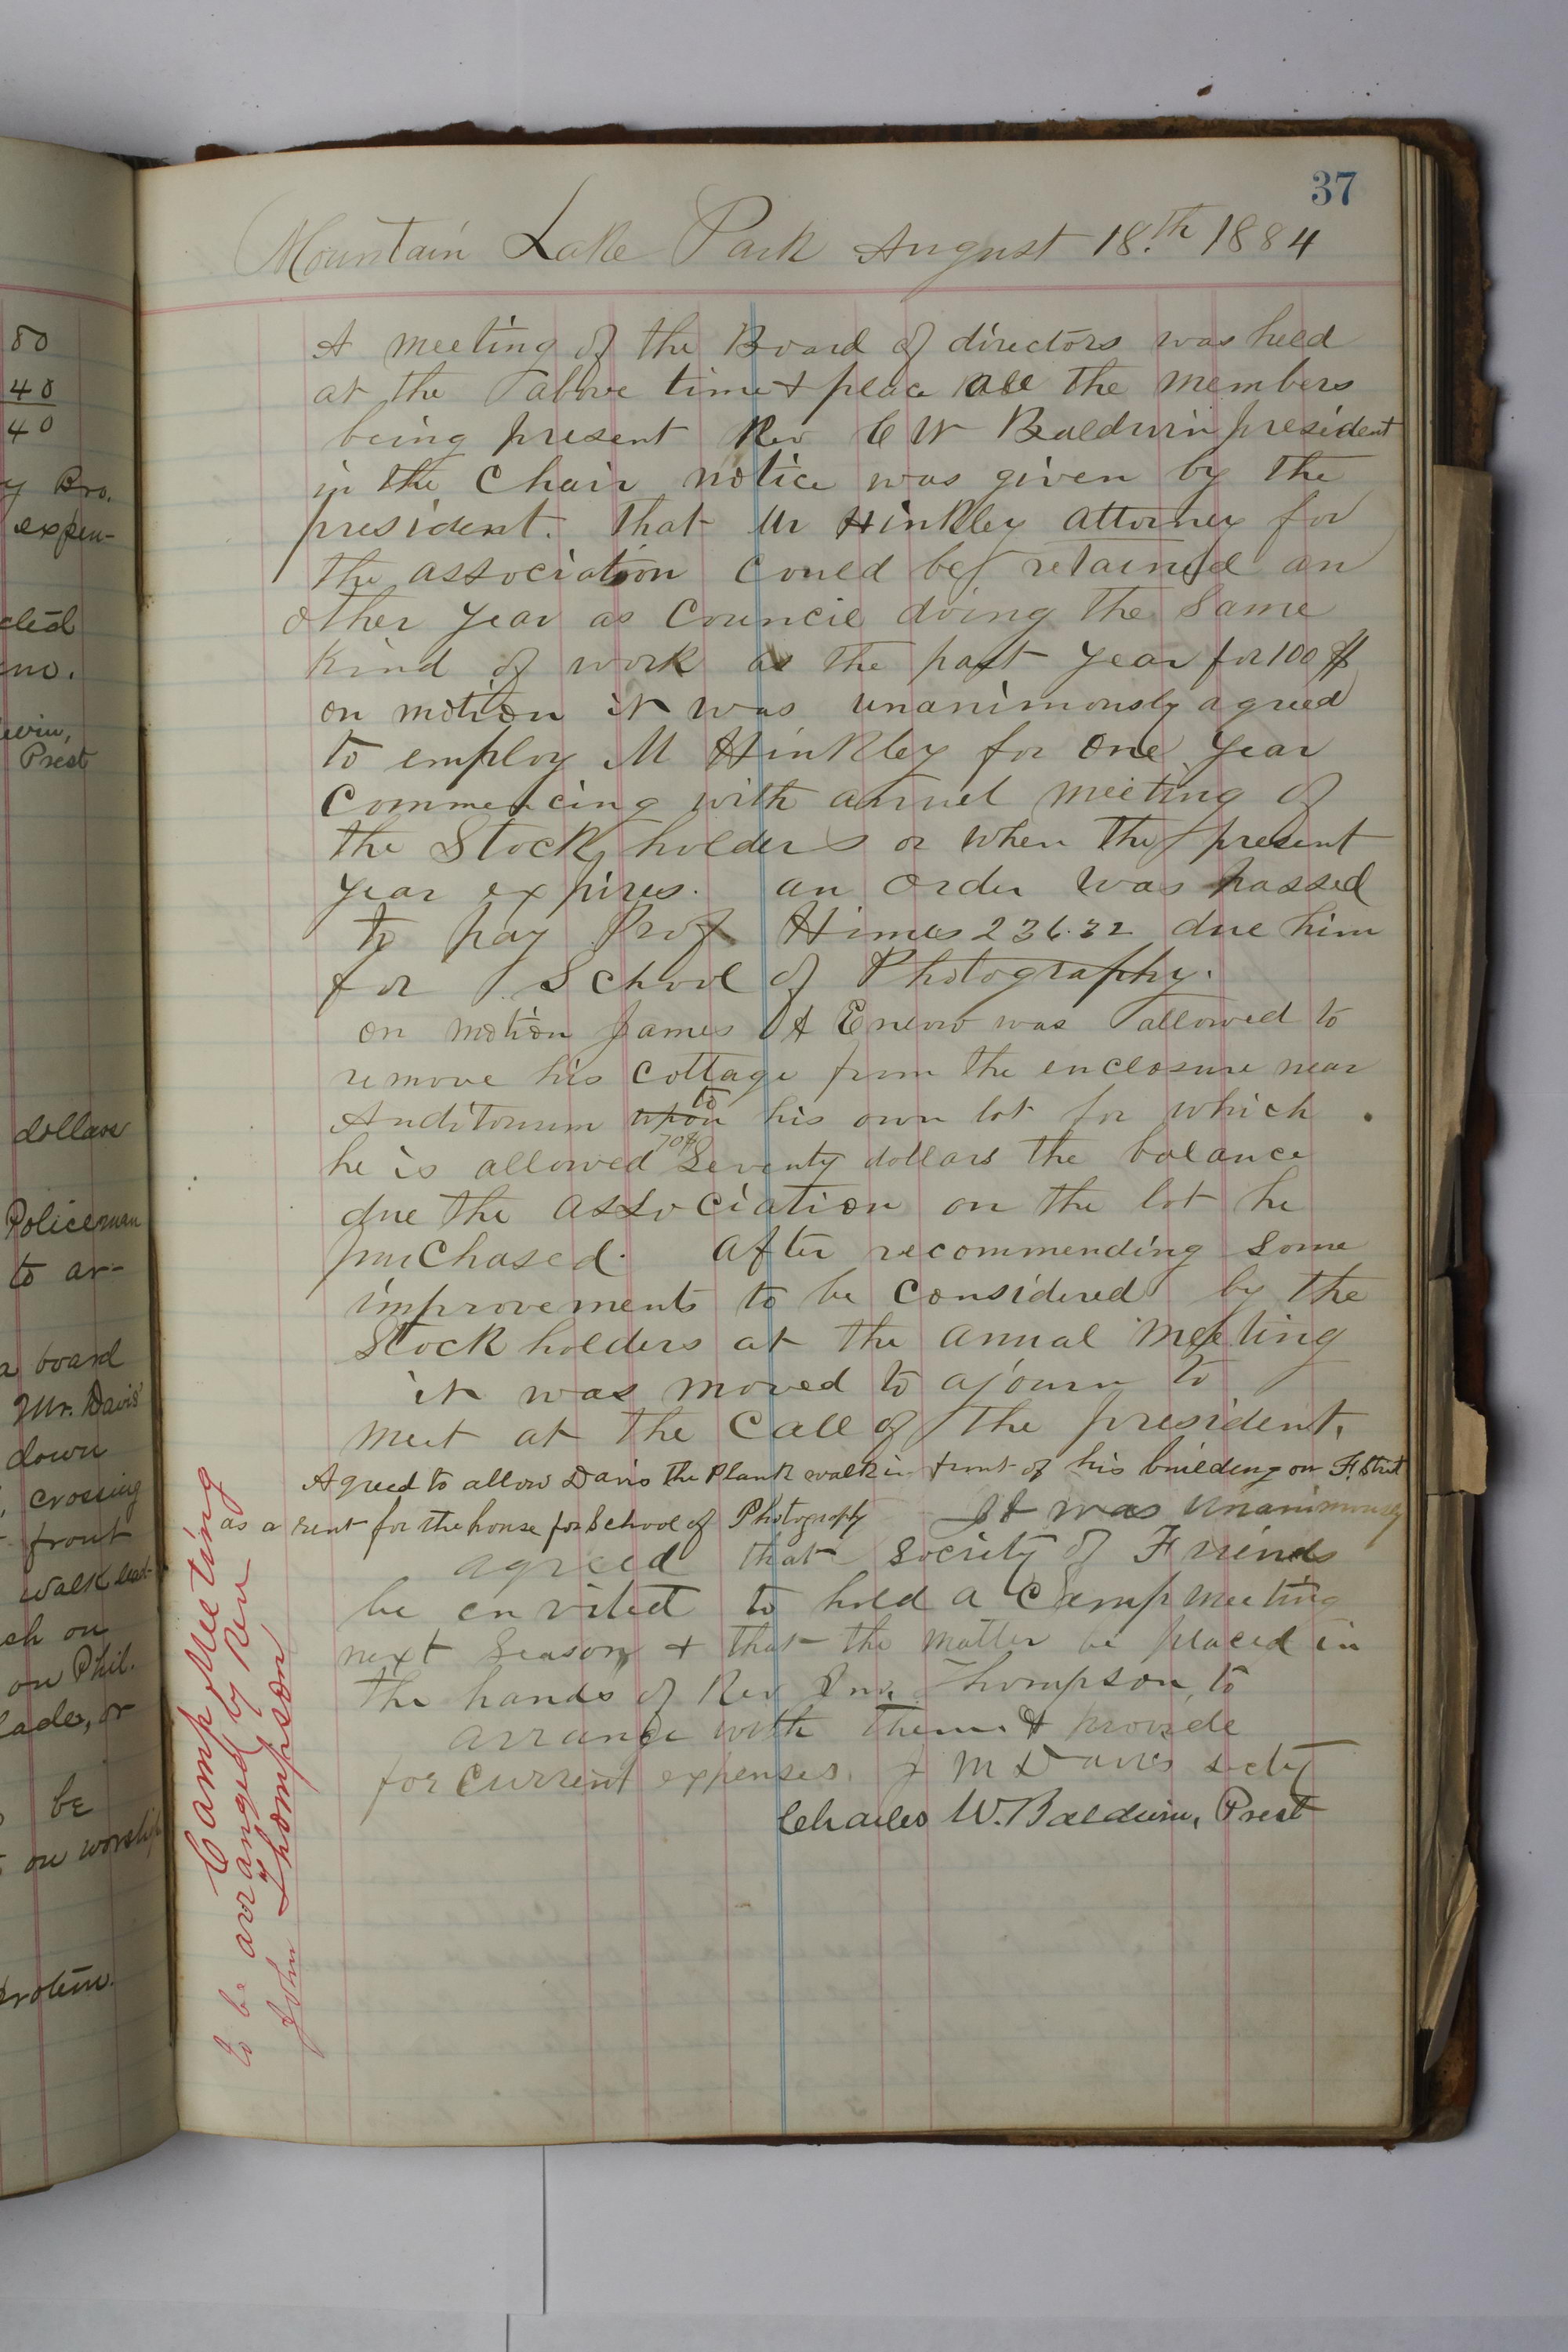 80
40
40
y Bro.
expen-
cted
mo.
win,
Prest
dollars
Policeman
to ar-
a board
Mr. Davis'
down
, crossing
front
walk lead-
sh on
on Phil.
lade, or
be
on worship
protem.
37
Mountain Lake Park August 18.th 1884
A meeting of the Board of directors was held
at the above time & place all the members
being present Rev C W Baldwin president
in the Chair notice was given by the
president. that Mr Hinkley attorney for
the association could be retained an
other year as Council doing the Same
Kind of work as the past year for 100 $
on motion it was unanimously agreed
to employ M Hinkley for one year
Commencing with annuel meeting of
the Stock holders or when the present
year expires. an order was passed
to pay Prof Himes 236.32 due him
for School of Photography.
on motion James A Enlow was allowed to
remove his cottage from the enclosure near
Auditorium upon to his own lot for which
he is allowed 70$ Seventy dollars the balance
due the association on the lot he
purchased. after recommending some
improvements to be considered by the
Stock holders at the annual meeting
it was moved to ajourn to
meet at the Call of the president.
Agreed to allow Davis the Plank walk in front of his building on F. Street
as a rent for the house for School of Photography It was unanimously
agreed that Society of Friends
be envited to hold a Camp meeting
next Season & that the matter be placed in
the hands of Rev Jno. Thompson, to
arrange with them & provide
for current expenses. J M Davis Secty
Charles W. Baldwin, Prest
Camp Meeting
to be arranged by Rev
John Thompson